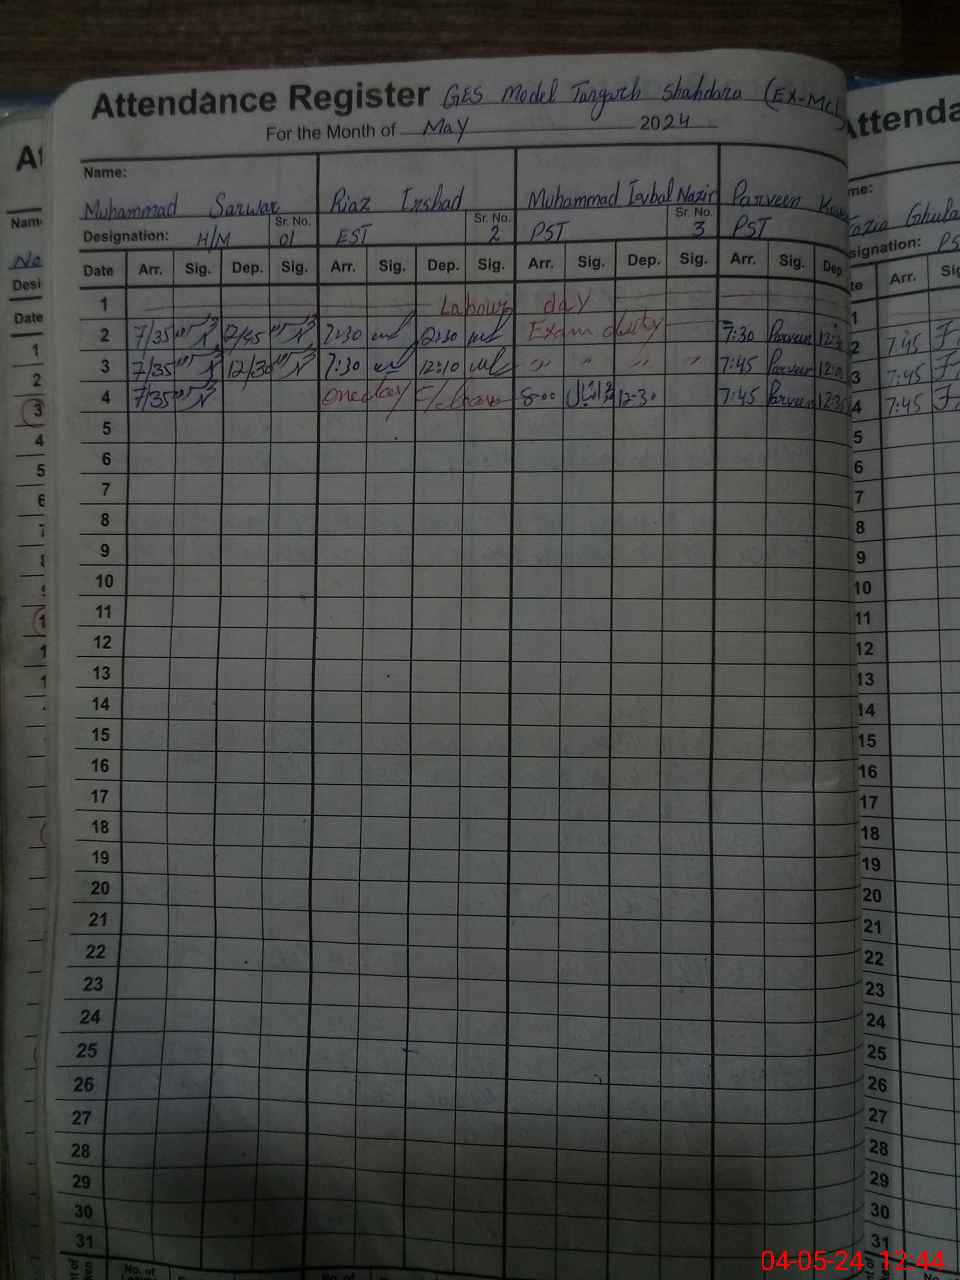 Attendance Register GES Model Shahdara (EX-MCL)
For the Month of May 2024
Name:
Muhammad Sarwar Riaz Irshad Muhammad Iqbal Nazir Parveen
Designation: H/M Sr. No. 01 EST Sr. No. 2 PST Sr. No. 3 PST
Date Arr. Sig. Dep. Sig. Arr. Sig. Dep. Sig. Arr. Sig. Dep. Sig. Arr. Sig. Dep
1 Labour day
2 7/35 12/45 7:30 12:30 Exam duty 7:30 Parveen
3 7/35 12/30 7:30 12:10 " " " " 7:45 Parveen
4 7/35 one day 8:00 12:30 7:45 Parveen
5
6
7
8
9
10
11
12
13
14
15
16
17
18
19
20
21
22
23
24
25
26
27
28
29
30
31
No. of
Attenda
me:
signation: PS
te Arr.
1
2 7:45
3 7:45
4 7:45
5
6
7
8
9
10
11
12
13
14
15
16
17
18
19
20
21
22
23
24
25
26
27
28
29
30
31
Name
Desi
Date
1
2
3
4
5
6
04-05-24 12:44